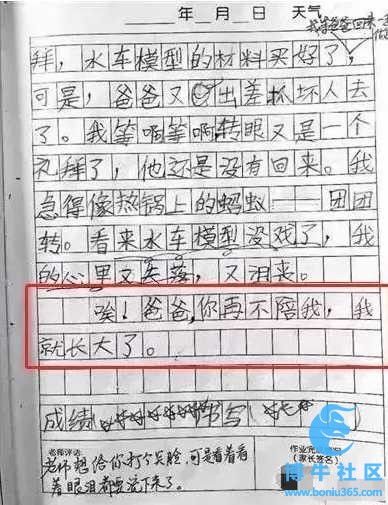 年 月 日 天气
我等爸爸回来
拜，水车模型的材料买好了，
可是，爸爸又出差抓坏人去
了。我等啊等啊，转眼又是一个
礼拜了，他还是没有回来。我
急得像热锅上的蚂蚁——团团
转。看来水车模型没戏了，我
的心里又失落，又沮丧。
唉！爸爸，你再不陪我，我
就长大了。
成绩 好好好好好好 书写
老师评语:
老师想给你打个笑脸，可是看着看
着眼泪都要流下来了。
作业完成
(家长签名)
博牛社区
www.boniu365.com